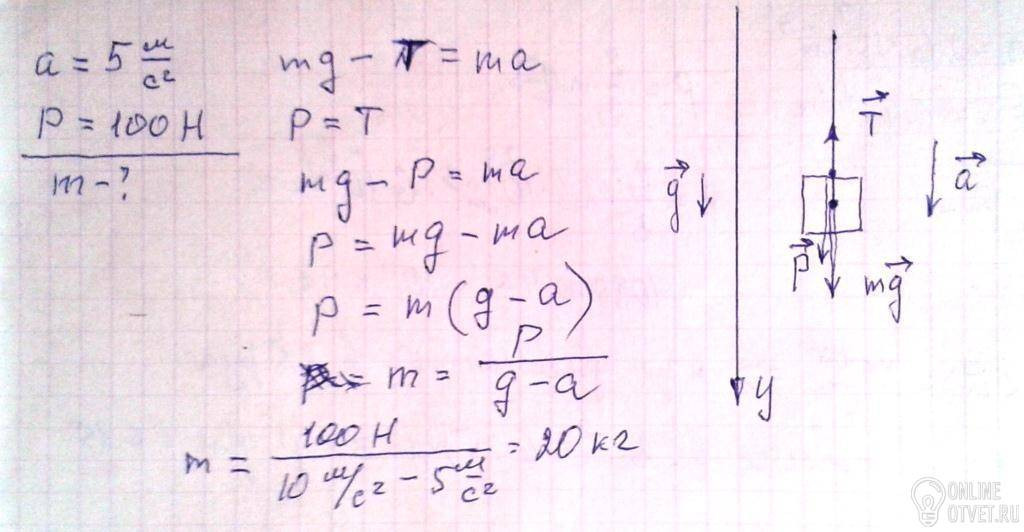 a = 5 м/с²
P = 100 Н
m - ?
mg - T = ma
P = T
mg - P = ma
P = mg - ma
P = m(g - a)
m = P/(g - a)
m = 100 Н/(10 м/с² - 5 м/с²) = 20 кг
T
g
a
P
mg
y
ONLINE
OTVET.RU